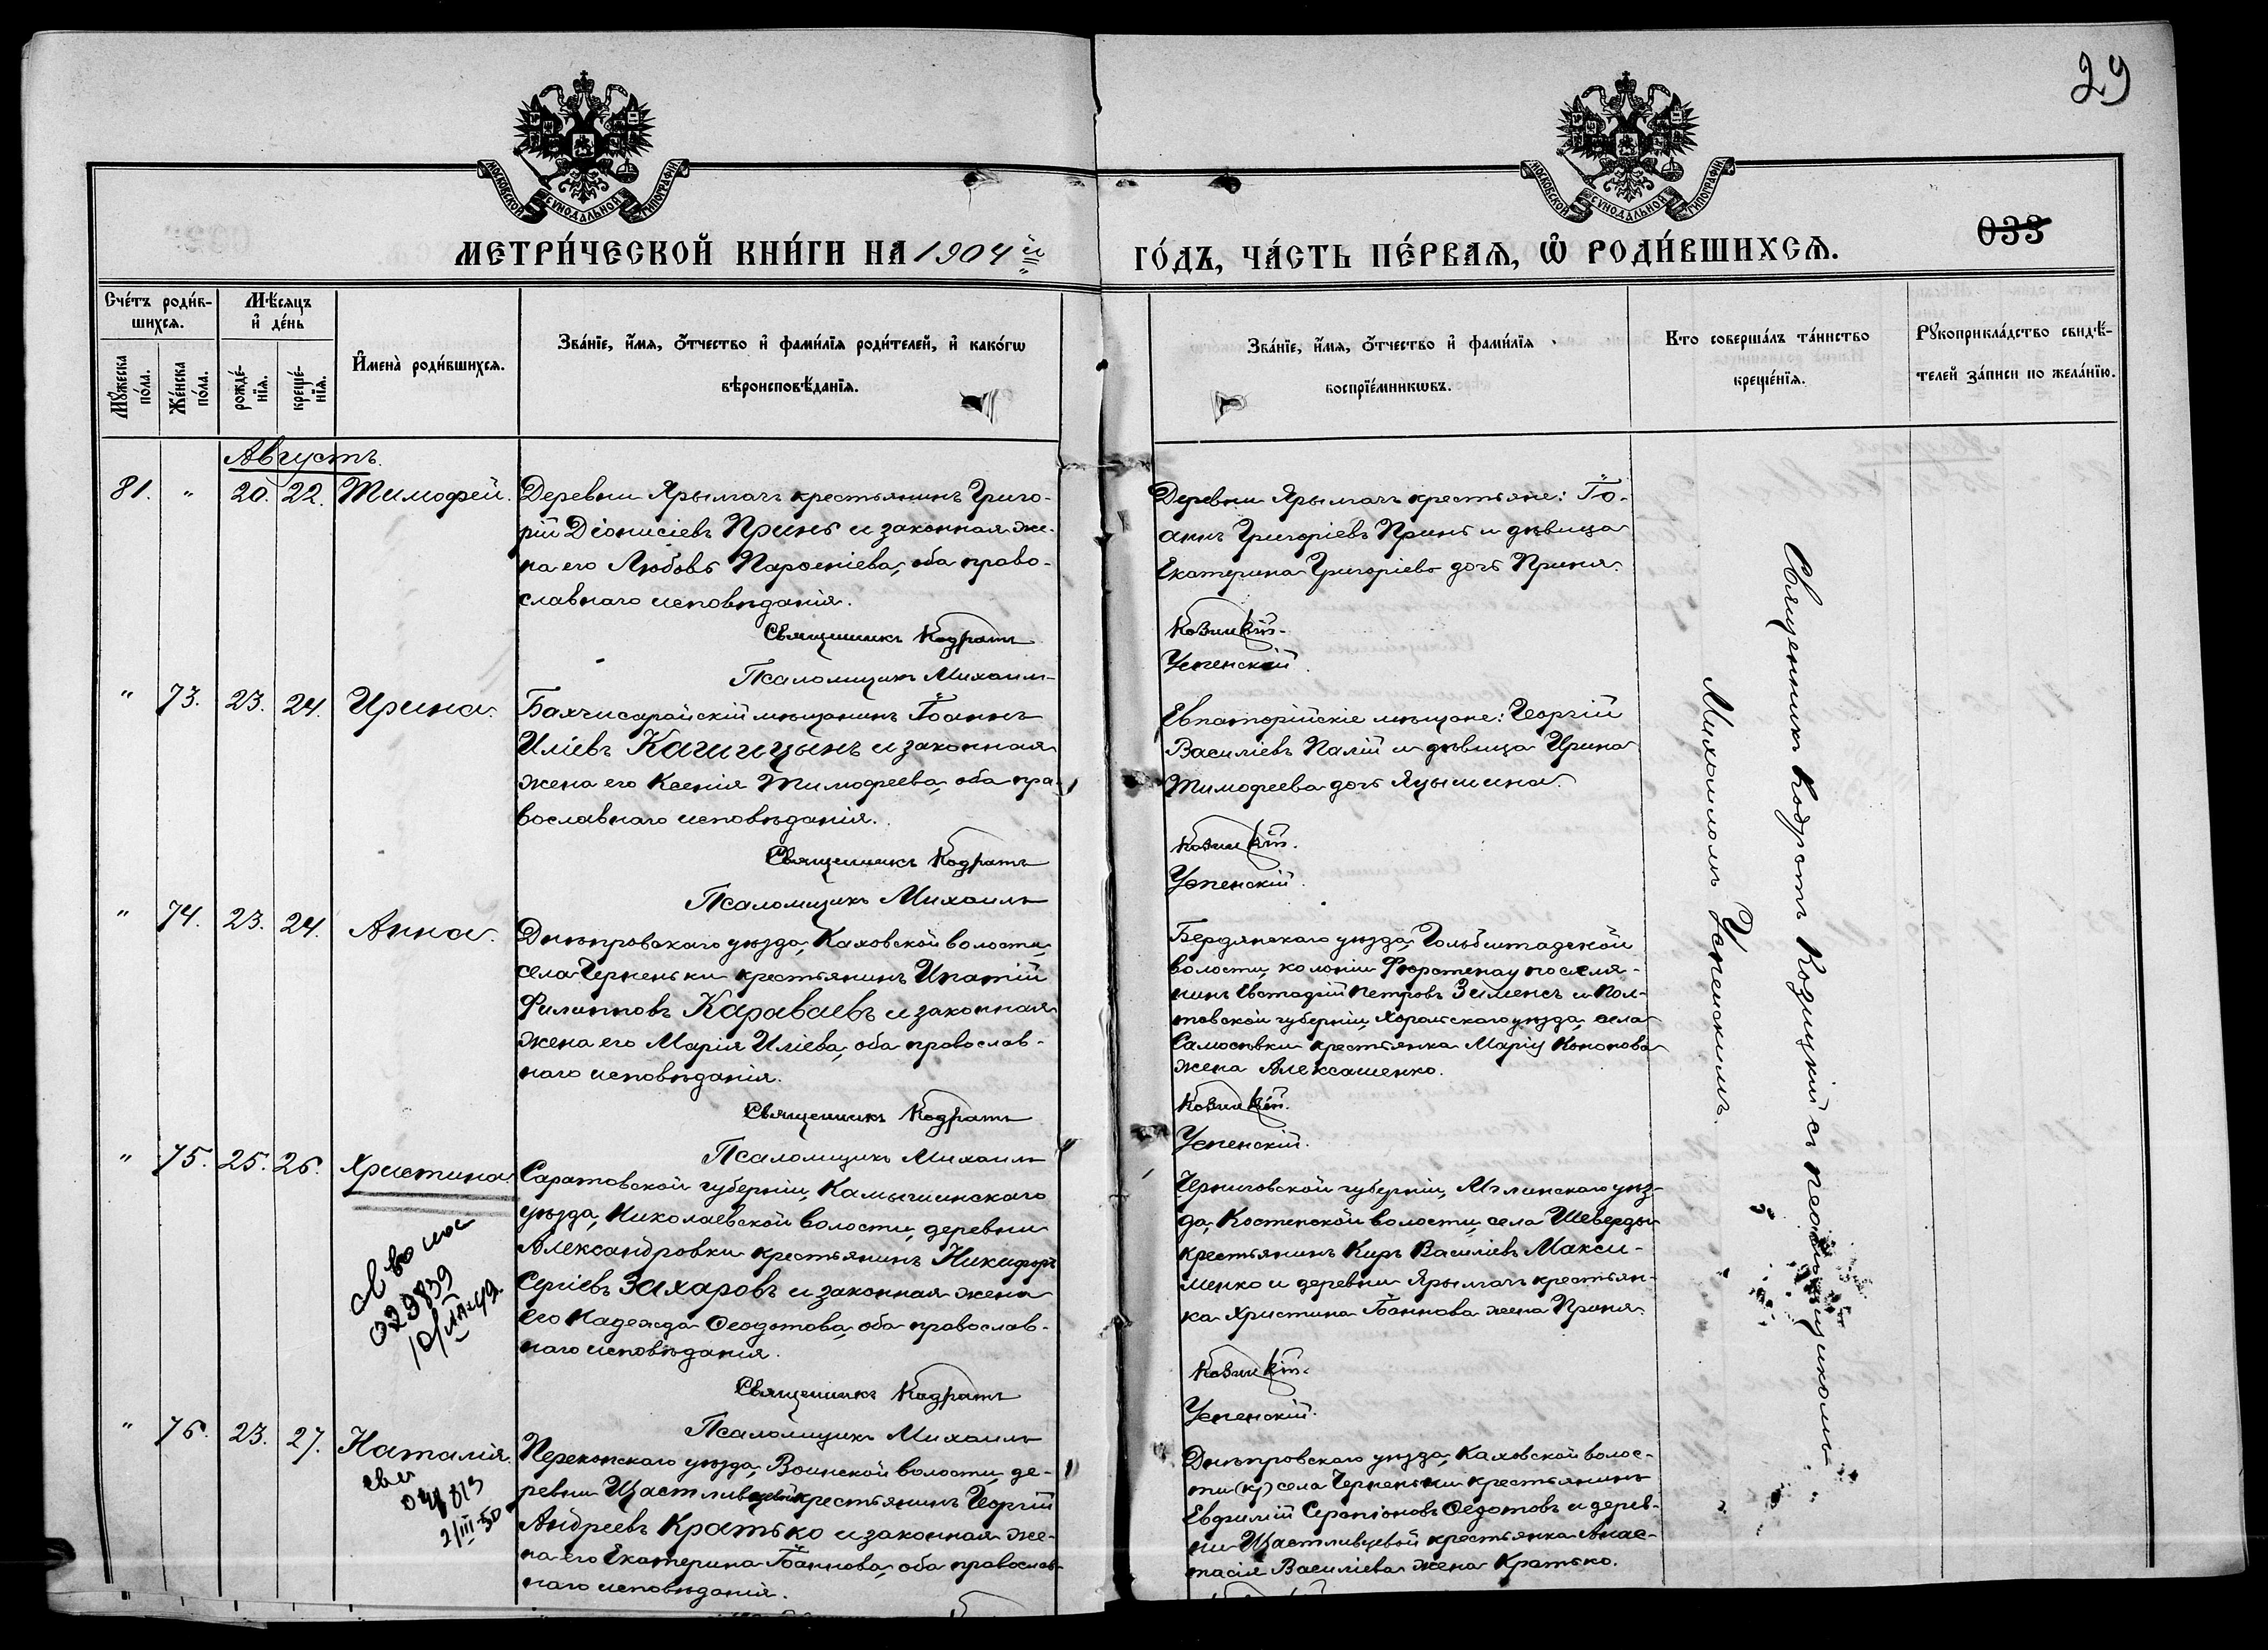 29
МОСКОВСКОЙ СѴНОДАЛЬНОЙ ТИПОГРАФІИ
МОСКОВСКОЙ СѴНОДАЛЬНОЙ ТИПОГРАФІИ
033
МЕТРИ́ЧЕСКОЙ КНИ́ГИ НА 1904й
ГО́ДЪ, ЧА́СТЬ ПЕ́РВАѦ, Ѡ҆ РОДИ́ВШИХСѦ.
Сче́тъ роди́в-
шихсѧ.
Мѣ́сяцъ
и҆ де́нь
Мꙋ́жеска
по́ла.
Же́нска
по́ла.
рожде́-
нїѧ.
креще́-
нїѧ.
И҆мена̀ роди́вшихсѧ.
Зва́нїе, и҆́мѧ, ѻ҆́тчество и҆ фами́лїѧ роди́телей, и҆ како́гѡ
вѣроисповѣ́данїѧ.
Зва́нїе, и҆́мѧ, ѻ҆́тчество и҆ фами́лїѧ
воспрїе́мникѡвъ.
Кто соверша́лъ та́инство
креще́нїѧ.
Рꙋкоприкла́дство свидѣ́-
телей за́писи по жела́нїю.
Августъ.
81. " 20. 22. Тимофей.
Деревни Ярылгачъ крестьянинъ Григо-
рій Діонисіевъ Принь и законная же-
на его Любовь Парѳеніева, оба право-
славнаго исповѣданія.
Священникъ Кодратъ
Псаломщикъ Михаилъ
Деревни Ярылгачъ крестьяне: Іо-
аннъ Григоріевъ Принь и дѣвица
Екатерина Григоріева дочь Приня.
Козицкій.
Успенскій.
" 73. 23. 24. Ирина.
Бахчисарайскій мѣщанинъ Іоаннъ
Иліевъ Кашицынъ и законная
жена его Ксенія Тимофеева, оба пра-
вославнаго исповѣданія.
Священникъ Кодратъ
Псаломщикъ Михаилъ
Евпаторійскіе мѣщане: Георгій
Василіевъ Палій и дѣвица Ирина
Тимофеева дочь Яцышина.
Козицкій.
Успенскій.
" 74. 23. 24. Анна.
Днѣпровскаго уѣзда, Каховской волости,
села Черненьки крестьянинъ Ипатій
Филипповъ Караваевъ и законная
жена его Марія Иліева, оба православ-
наго исповѣданія.
Священникъ Кодратъ
Псаломщикъ Михаилъ
Бердянскаго уѣзда, Гольбштадской
волости, колоніи Фюрстенау поселя-
нинъ Евстафій Петровъ Зименсъ и Пол-
тавской губерніи, Хорольскаго уѣзда, села
крестьянка Марія Кононова
жена Алексашенко.
Козицкій.
Успенскій.
" 75. 25. 26. Христина.
029839
Саратовской губерніи, Камышинскаго
уѣзда, Николаевской волости, деревни
Александровки крестьянинъ Никифоръ
Сергіевъ Захаровъ и законная жена
его Надежда Ѳеодотова, оба православ-
наго исповѣданія.
Священникъ Кодратъ
Псаломщикъ Михаилъ
Черниговской губерніи, Мглинскаго уѣз-
да, Костенской волости, села Шеверды
крестьянинъ Киръ Василіевъ Макси-
менко и деревни Ярылгачъ крестьян-
ка Христина Іоаннова жена Приня.
Козицкій.
Успенскій.
" 76. 23. 27. Наталія.
2/III-50
Перекопскаго уѣзда, Воинской волости, де-
ревни крестьянинъ Георгій
Андреевъ Кратько и законная же-
на его Екатерина Іоаннова, оба православ-
наго исповѣданія.
Днѣпровскаго уѣзда, Каховской волос-
ти села Черненьки крестьянинъ
Евфимій Серапіоновъ Ѳедотовъ и дерев-
ни Щастливцевой крестьянка Анас-
тасія Василіева жена Кратько.
Священникъ Кодратъ Козицкій съ псаломщикомъ
Михаиломъ Успенскимъ.